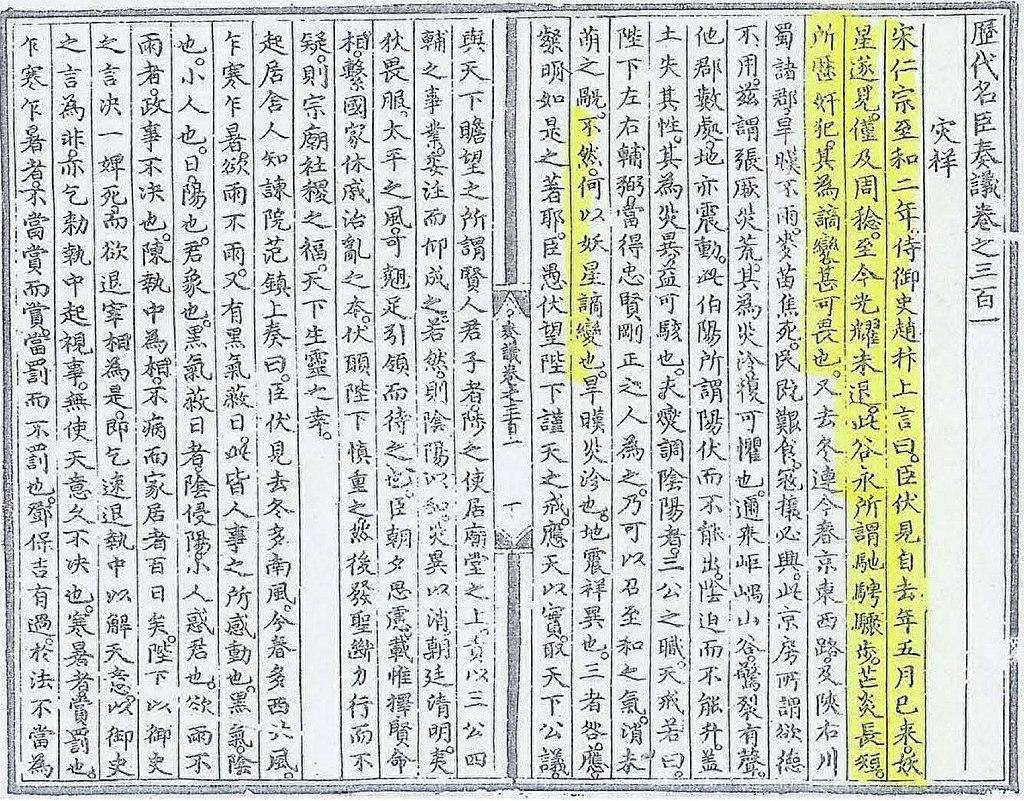 歷代名臣奏議卷之三百一
災祥
宋仁宗至和二年。侍御史趙抃上言曰。臣伏見自去年五月已來。妖
星遂見。僅及周稔。至今光耀未退。此谷永所謂馳騁驟步。芒炎長短。
所歷奸犯。其為謫變甚可畏也。又去冬連今春京東西路及陜右川
蜀諸郡旱暵不雨。麥苗焦死。民既艱食。寇攘必興。此京房所謂欲德
不用。茲謂張厥災荒。其為災沴復可懼也。邇來岠嵎山谷驚裂有聲。
他郡數處。地亦震動。此伯陽所謂陽伏而不能出。陰迫而不能升。蓋
土失其性。其為災異益可駭也。夫燮調陰陽者。三公之職。天戒若曰
陛下左右輔弼。當得忠賢剛正之人為之。乃可以召至和之氣。消未
萌之。不然。何以妖星謫變也。旱暵災沴也。地震祥異也。三者咎應。
察明如是之著耶。臣愚伏望陛下謹天之戒。應天以實。取天下公議。
奏議卷之三百一
一
與天下瞻望之所謂賢人君子者。陟之使居廟堂之上。責以三公四
輔之事業。委注而仰成之。若然。則陰陽以和。災異以消。朝廷清明。夷
狄畏服。太平之風。可翹足引領而待之也。臣朝夕思慮。載惟擇賢命
相。繫國家休戚治亂之本。伏願陛下慎重之。然後發聖斷力行而不
疑。則宗廟社稷之福。天下生靈之幸。
起居舍人知諫院范鎮上奏曰。臣伏見去冬多南風。今春多西北風。
乍寒乍暑。欲雨不雨。又有黑氣蔽日。此皆人事之所感動也。黑氣。陰
也。小人也。日。陽也。君象也。黑氣蔽日者。陰侵陽。小人惑君也。欲雨不
雨者。政事不決也。陳執中為相。不病而家居者百日矣。陛下以御史
之言決一婢死。而欲退宰相為是。即乞速退執中以解天意。以御史
之言為非。亦乞勅執中起視事。無使天意久不決也。寒暑者賞罰也。
乍寒乍暑者。不當賞而賞。當罰而不罰也。鄧保吉有過。於法不當為